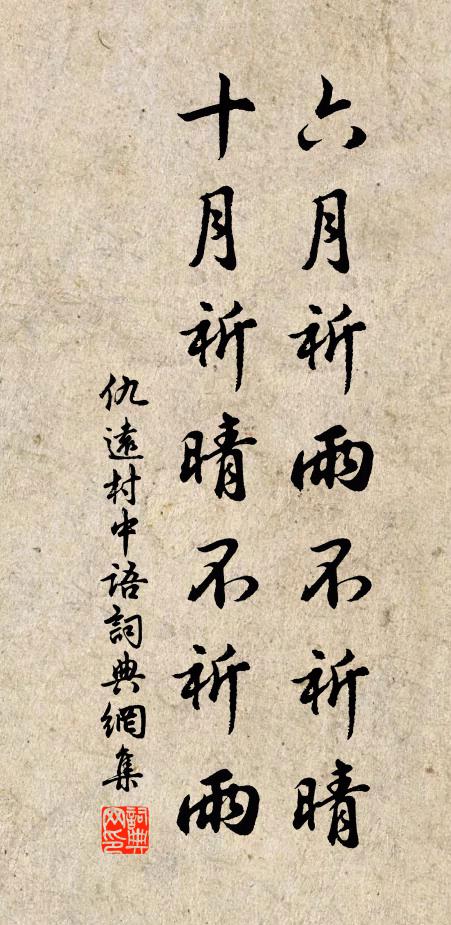 六月祈雨不祈晴
十月祈晴不祈雨
仇遠村中語詞典網集
詞典网印